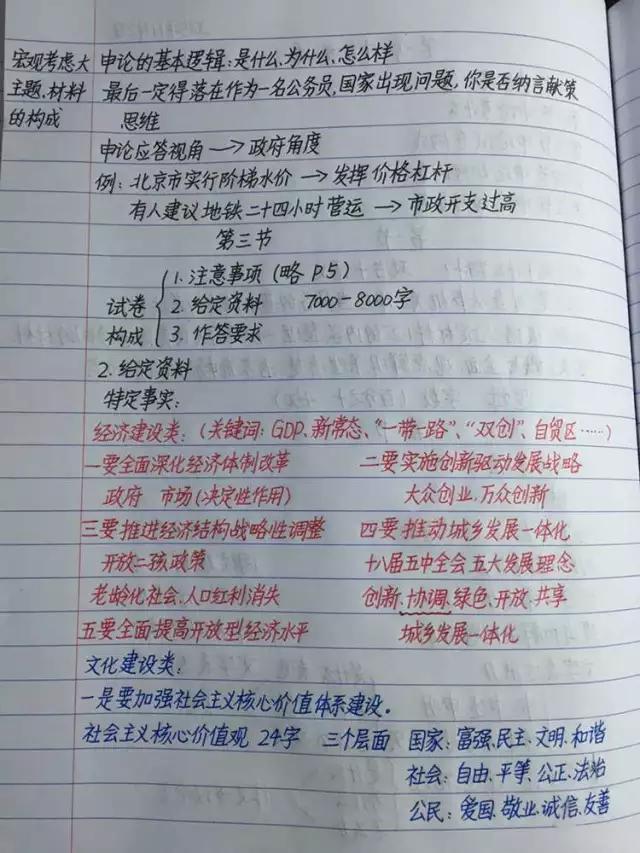 宏观考虑大
主题、材料
的构成
申论的基本逻辑:是什么、为什么、怎么样
最后一定得落在作为一名公务员,国家出现问题,你是否纳言献策
思维
申论应答视角→政府角度
例:北京市实行阶梯水价→发挥价格杠杆
有人建议地铁二十四小时营运→市政开支过高
第三节
试卷
构成
1. 注意事项(略 P5)
2. 给定资料 7000-8000字
3. 作答要求
2. 给定资料
特定事实:
经济建设类:(关键词:GDP、新常态、“一带一路”、“双创”、自贸区……)
一要全面深化经济体制改革 二要实施创新驱动发展战略
政府 市场(决定性作用) 大众创业,万众创新
三要推进经济结构战略性调整 四要推动城乡发展一体化
开放二孩政策 十八届五中全会五大发展理念
老龄化社会、人口红利消失 创新、协调、绿色、开放、共享
五要全面提高开放型经济水平 城乡发展一体化
文化建设类:
一是要加强社会主义核心价值体系建设。
社会主义核心价值观 24字 三个层面 国家:富强、民主、文明、和谐
社会:自由、平等、公正、法治
公民:爱国、敬业、诚信、友善